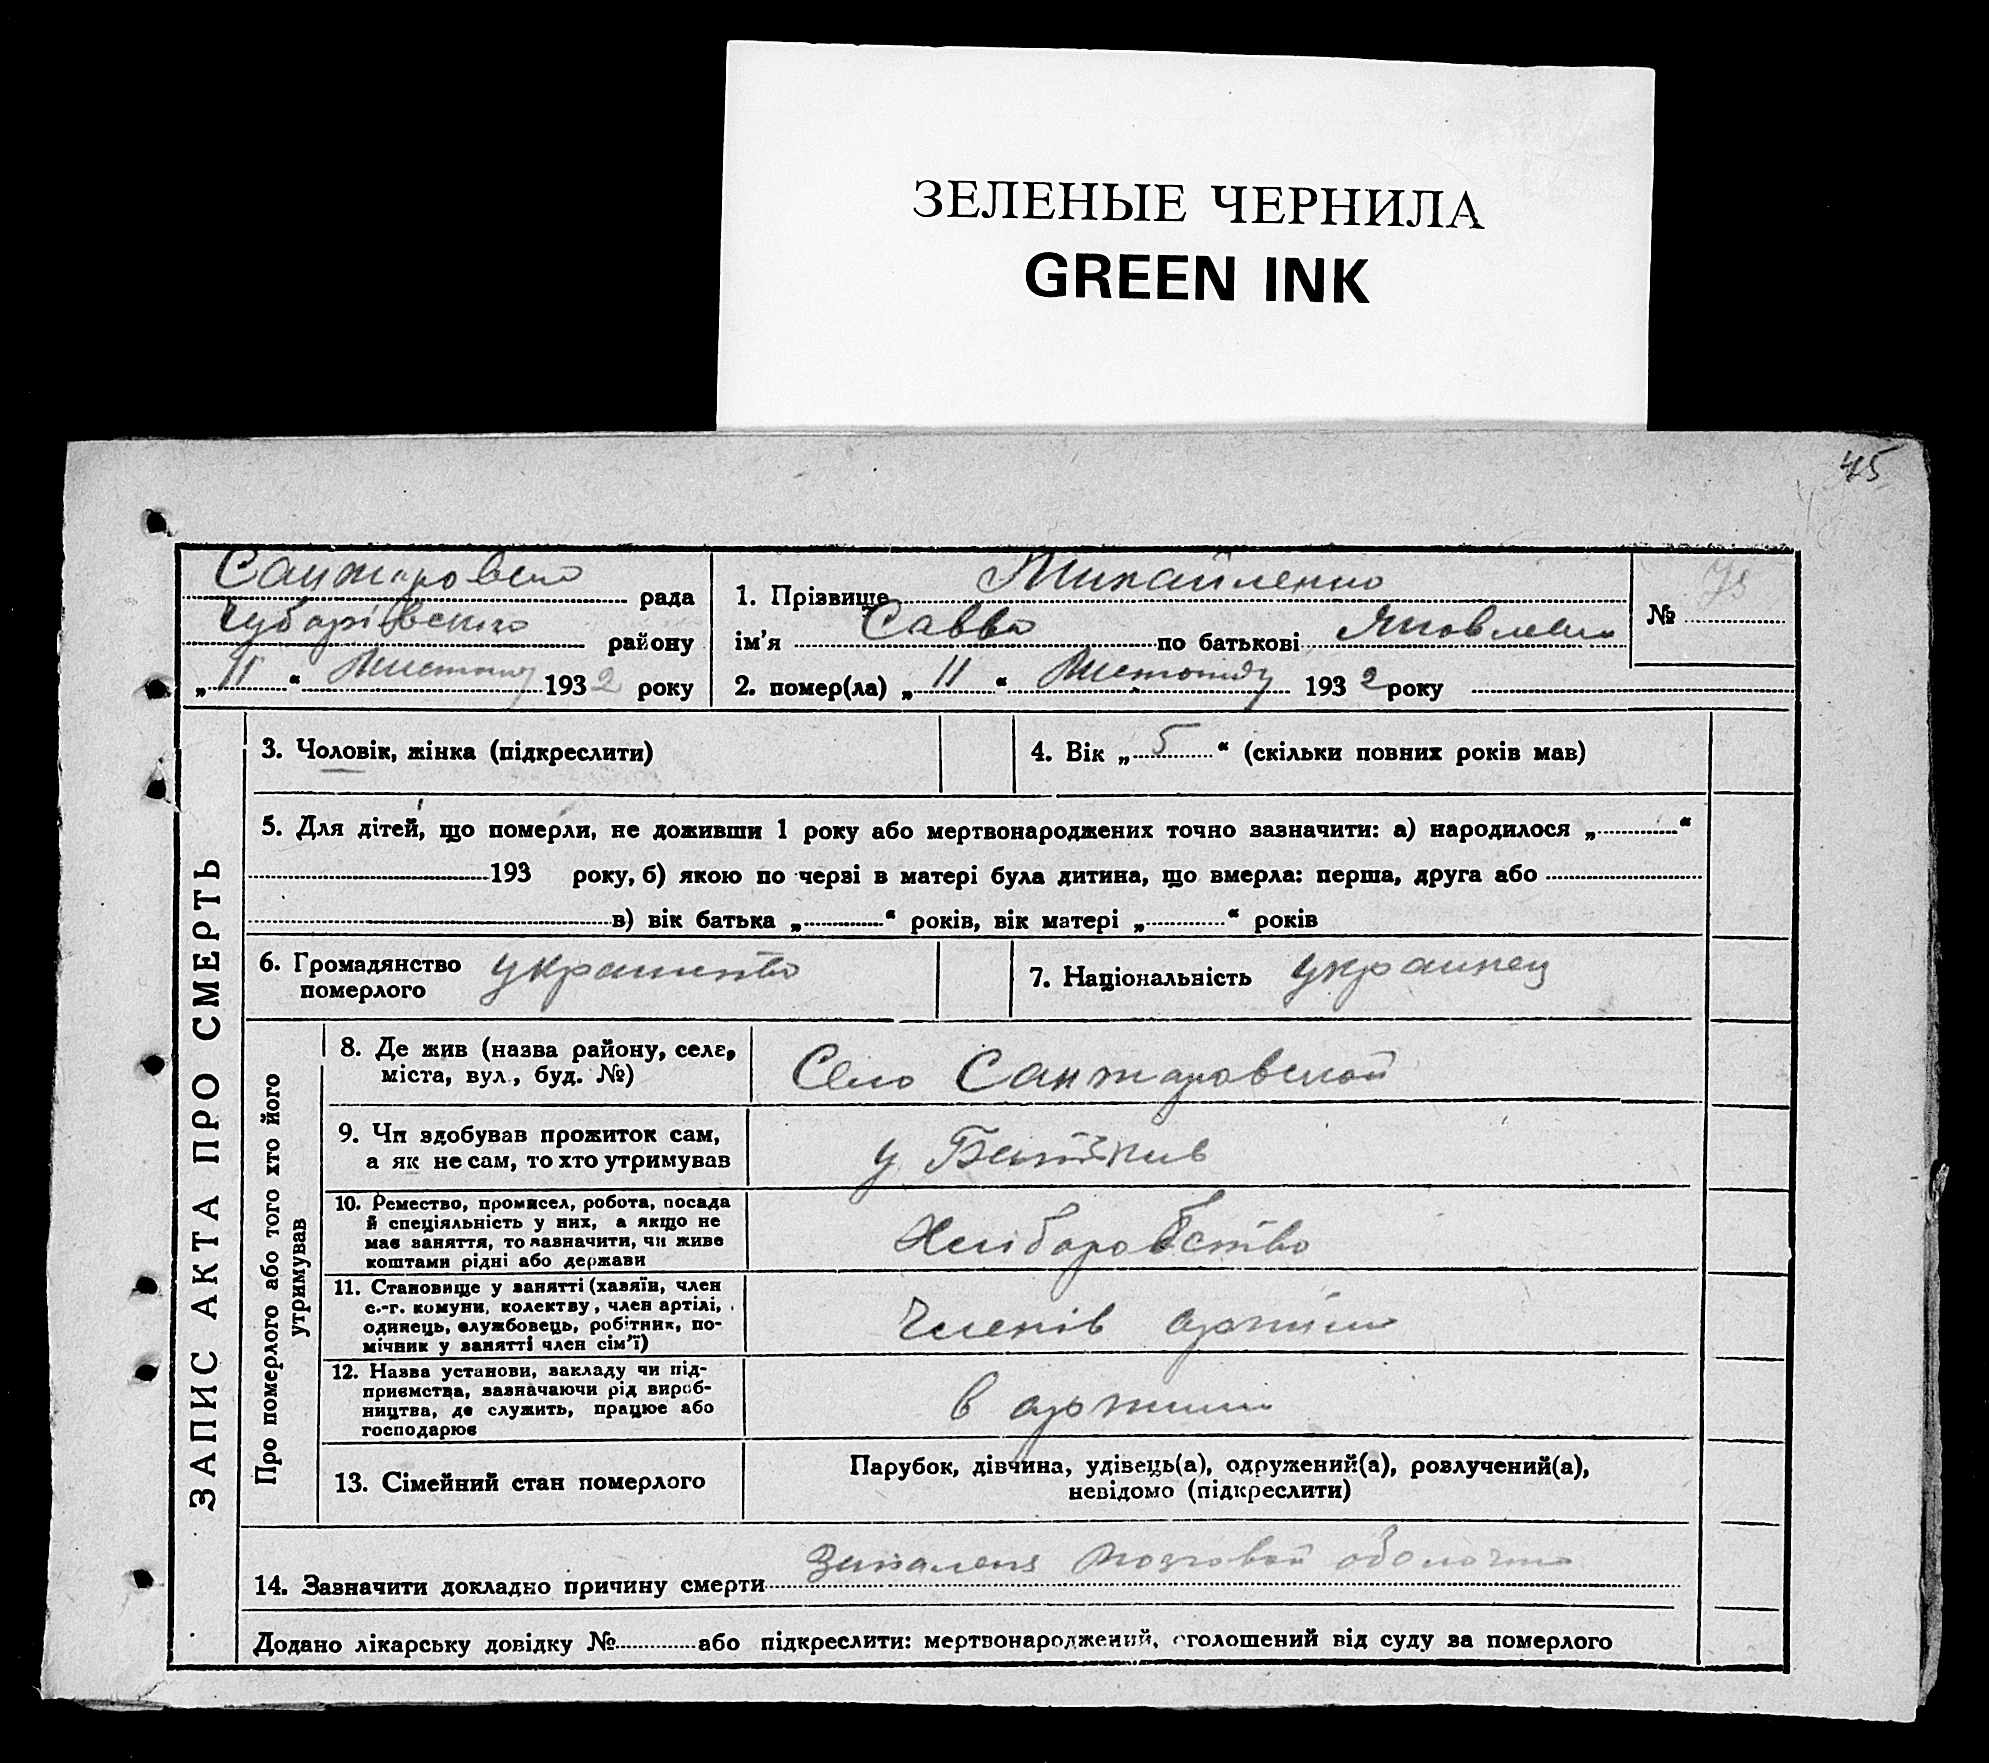 ЗЕЛЕНЫЕ ЧЕРНИЛА
GREEN INK
45
Санжаровсько рада
Чубарівського району
„ 11 “ Листопад 1932 року
1. Прізвище Михайленко
ім’я Савва по батькові Яковлевич
2. помер(ла) „ 11 “ Листопаду 1932 року
№ 75
ЗАПИС АКТА ПРО СМЕРТЬ
3. Чоловік, жінка (підкреслити)
4. Вік „ 5 “ (скільки повних років мав)
5. Для дітей, що померли, не доживши 1 року або мертвонароджених точно зазначити: а) народилося „ “
193 року, б) якою по черзі в матері була дитина, що вмерла: перша, друга або
в) вік батька „ “ років, вік матері „ “ років
6. Громадянство украинство
померлого
7. Національність украинец
Про померлого або того хто його
утримував
8. Де жив (назва району, села,
міста, вул., буд. №)
Село Санжаровской
9. Чи здобував прожиток сам,
а як не сам, то хто утримував
у Батькив
10. Ремество, промисел, робота, посада
й спеціяльність у них, а якщо не
має заняття, то зазначити, чи живе
коштами рідні або держави
Хлиборобство
11. Становище у занятті (хазяїн, член
с.-г. комуни, колективу, член артілі,
одинець, службовець, робітник, по-
мічник у занятті член сім’ї)
Членів артіли
12. Назва установи, закладу чи під-
приємства, зазначаючи рід вироб-
ництва, де служить, працює або
господарює
в артили
13. Сімейний стан померлого
Парубок, дівчина, удівець(а), одружений(а), розлучений(а),
невідомо (підкреслити)
14. Зазначити докладно причину смерти Запаленя мозговой оболочки
Додано лікарську довідку № або підкреслити: мертвонароджений, оголошений від суду за померлого